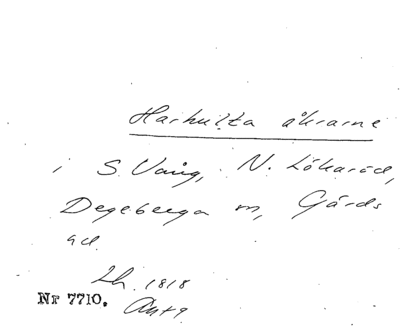 Harhulta åkrarne
i S. Vång, N. Lökaröd,
Degeberga sn, Gärds
hd.
Lh. 1818
Nr 7710.